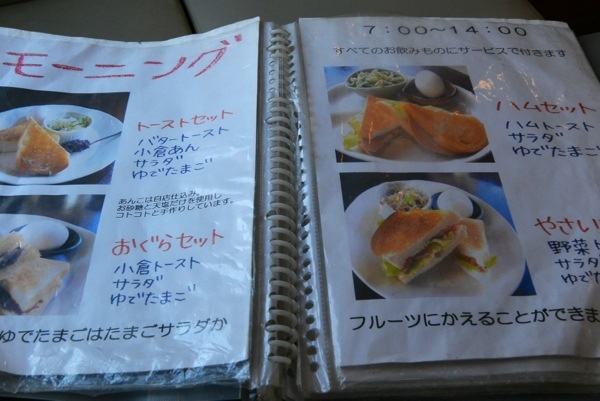 モーニング
トーストセット
バタートースト
小倉あん
サラダ
ゆでたまご
あんこは自店仕込み。
お砂糖と天塩だけを使用し
コトコトと手作りしています。
おぐらセット
小倉トースト
サラダ
ゆでたまご
ゆでたまごはたまごサラダか
7:00~14:00
すべてのお飲みものにサービスで付きます
ハムセット
ハムトースト
サラダ
ゆでたまご
やさい
野菜ト
サラダ
ゆでたま
フルーツにかえることができま